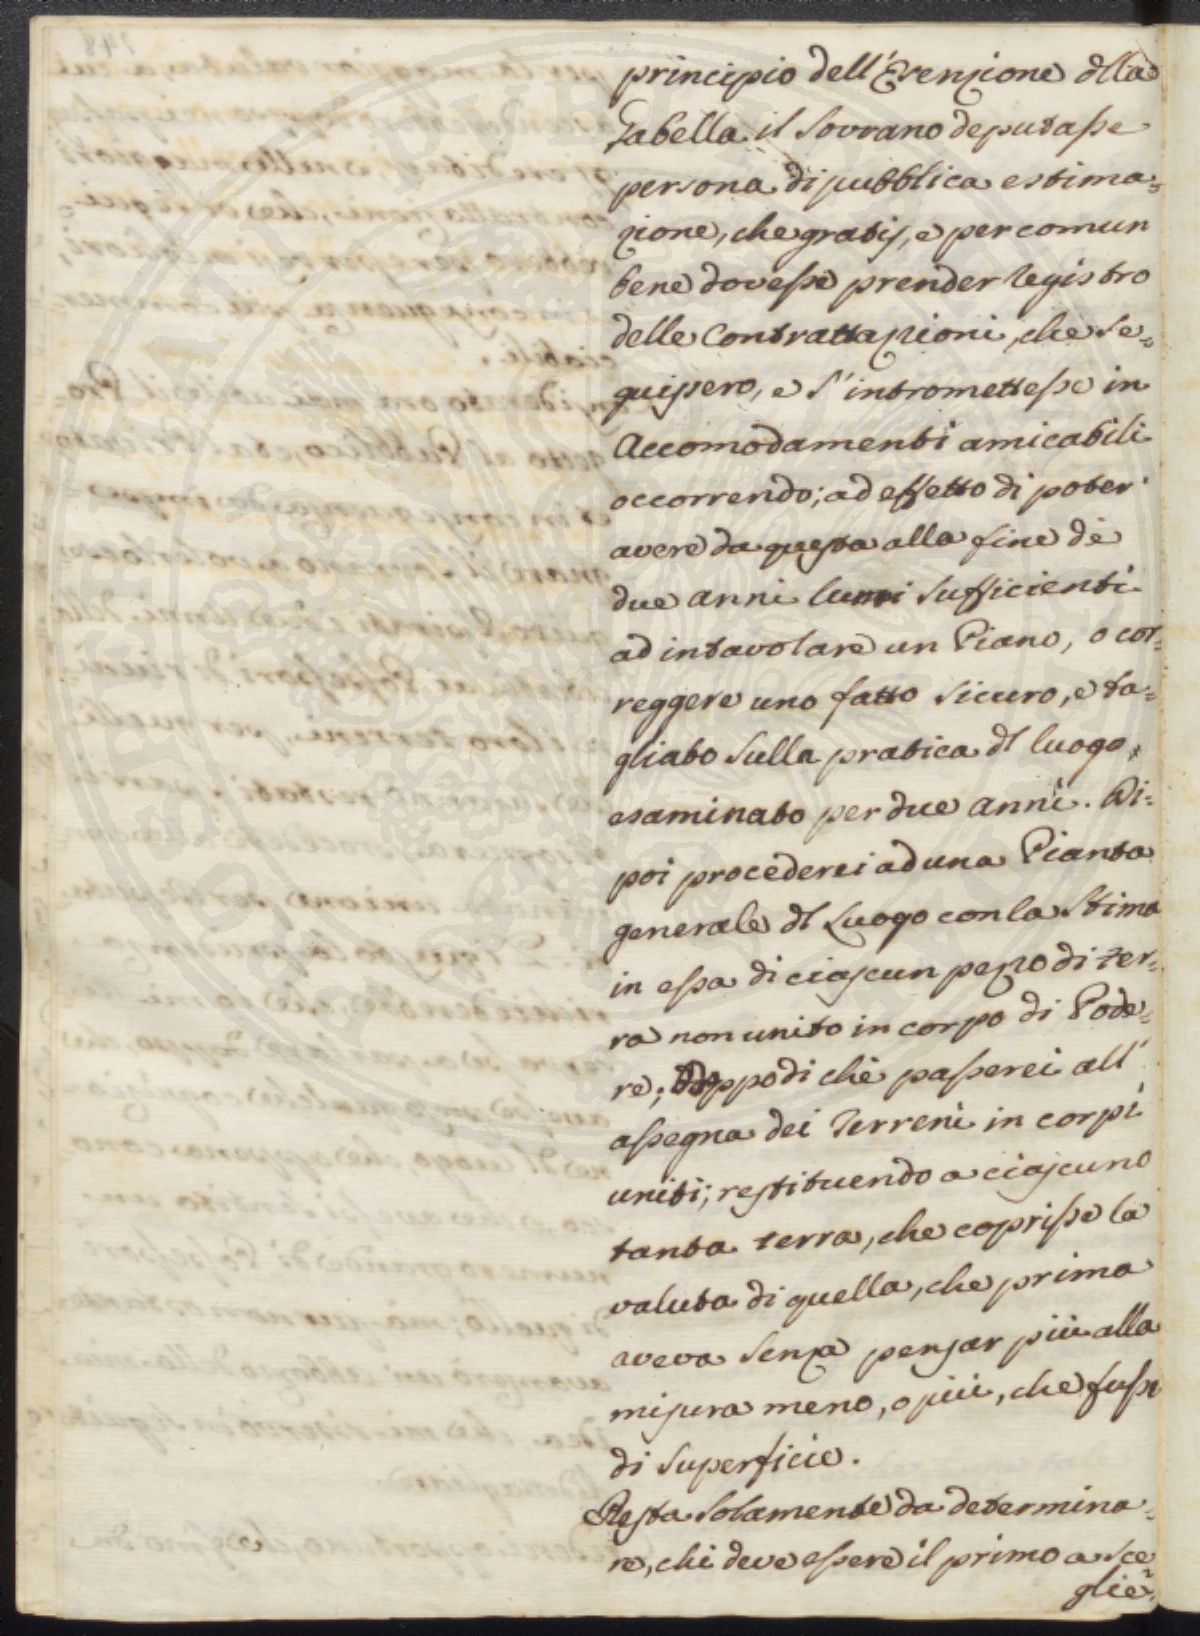 principio dell'Esenzione dlla
Tabella il Sovrano deputasse
persona di pubblica estima=
zione, che gratis, e per comun
bene dovesse prender registro
delle Contrattazioni, che se=
guissero, e s'intromettesse in
Accomodamenti amicabili
occorrendo; ad effetto di poter
avere da questa alla fine de
due anni lumi sufficienti
ad intavolare un Piano, o cor=
reggere uno fatto sicuro, e ta=
gliato sulla pratica dl luogo,
esaminato per due anni. Di=
poi procederei ad una Pianta
generale dl Luogo con la stima
in essa di ciascun pezzo di ter=
ra non unito in corpo di Pode=
re; doppodi chè passerei all'
assegna dei Terreni in corpi
uniti; restituendo a ciascuno
tanta terra, che coprisse la
valuta di quella, che prima
aveva senza pensar più alla
misura meno, o più, che fusse
di superficie.
Resta solamente da determina=
re, chi deve essere il primo a sce
glie=